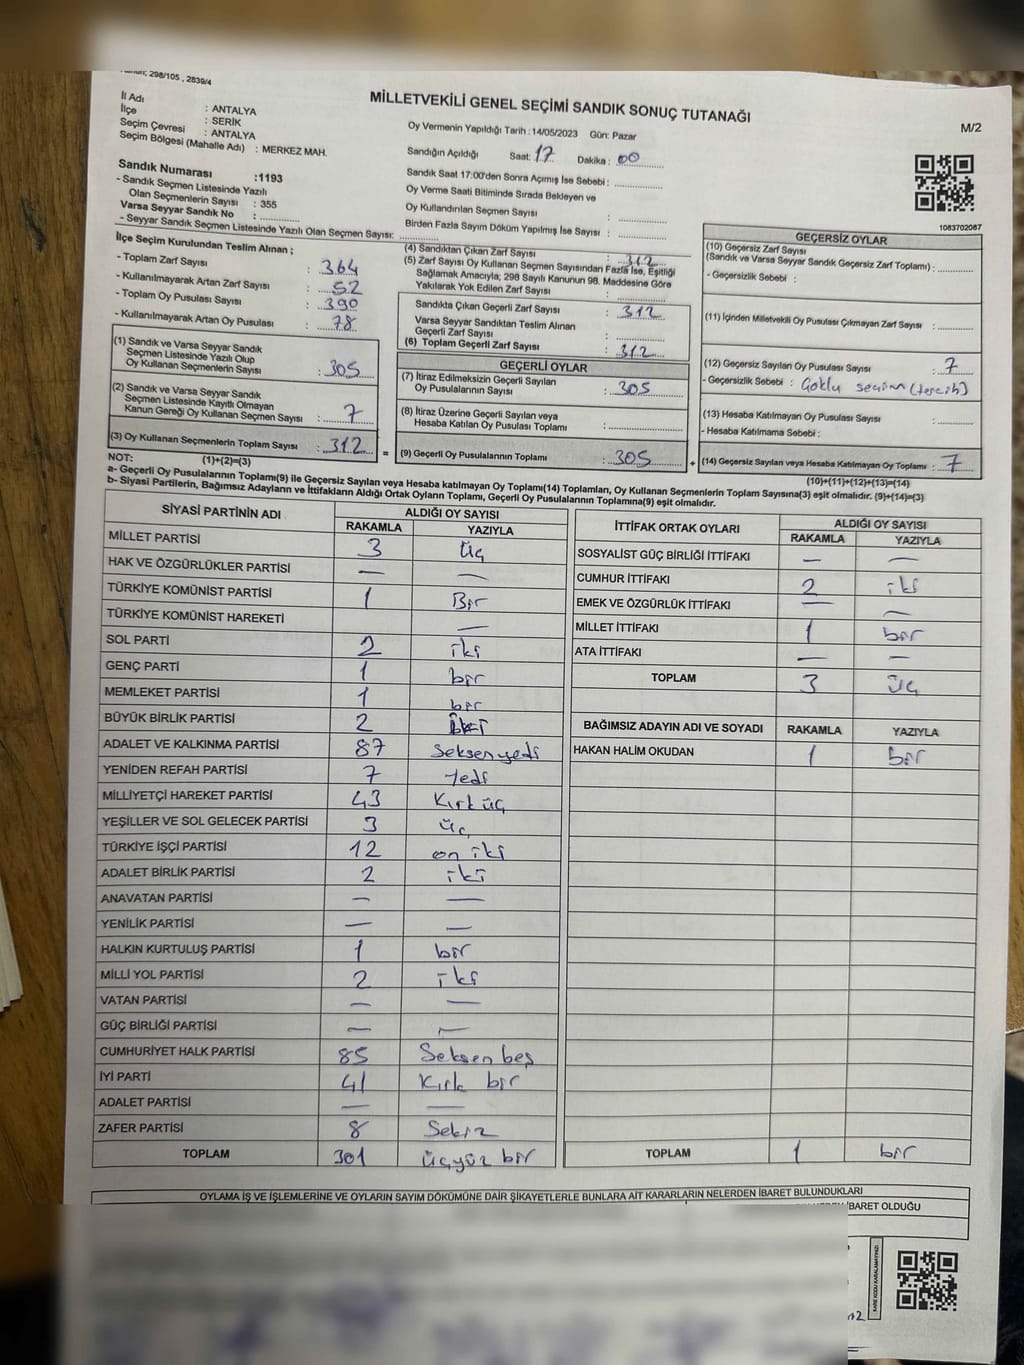 298/105 , 2839/4
MİLLETVEKİLİ GENEL SEÇİMİ SANDIK SONUÇ TUTANAĞI
M/2
İl Adı : ANTALYA
İlçe : SERİK
Seçim Çevresi : ANTALYA
Seçim Bölgesi (Mahalle Adı) : MERKEZ MAH.
Sandık Numarası :1193
- Sandık Seçmen Listesinde Yazılı
Olan Seçmenlerin Sayısı : 355
Varsa Seyyar Sandık No :
- Seyyar Sandık Seçmen Listesinde Yazılı Olan Seçmen Sayısı:
Oy Vermenin Yapıldığı Tarih : 14/05/2023 Gün: Pazar
Sandığın Açıldığı Saat: 17 Dakika : 00
Sandık Saat 17:00'den Sonra Açımış İse Sebebi :
Oy Verme Saati Bitiminde Sırada Bekleyen ve
Oy Kullandırılan Seçmen Sayısı :
Birden Fazla Sayım Döküm Yapılmış İse Sayısı :
1083702087
İlçe Seçim Kurulundan Teslim Alınan ;
- Toplam Zarf Sayısı : 364
- Kullanılmayarak Artan Zarf Sayısı : 52
- Toplam Oy Pusulası Sayısı : 390
- Kullanılmayarak Artan Oy Pusulası : 78
(1) Sandık ve Varsa Seyyar Sandık
Seçmen Listesinde Yazılı Olup
Oy Kullanan Seçmenlerin Sayısı : 305
(2) Sandık ve Varsa Seyyar Sandık
Seçmen Listesinde Kayıtlı Olmayan
Kanun Gereği Oy Kullanan Seçmen Sayısı : 7
(3) Oy Kullanan Seçmenlerin Toplam Sayısı : 312 =
(4) Sandıktan Çıkan Zarf Sayısı : 312
(5) Zarf Sayısı Oy Kullanan Seçmen Sayısından Fazla İse, Eşitliği
Sağlamak Amacıyla; 298 Sayılı Kanunun 98. Maddesine Göre
Yakılarak Yok Edilen Zarf Sayısı :
Sandıkta Çıkan Geçerli Zarf Sayısı : 312
Varsa Seyyar Sandıktan Teslim Alınan
Geçerli Zarf Sayısı :
(6) Toplam Geçerli Zarf Sayısı : 312
GEÇERLİ OYLAR
(7) İtiraz Edilmeksizin Geçerli Sayılan
Oy Pusulasının Sayısı : 305
(8) İtiraz Üzerine Geçerli Sayılan veya
Hesaba Katılan Oy Pusulası Toplamı :
(9) Geçerli Oy Pusulalarının Toplamı : 305 +
GEÇERSİZ OYLAR
(10) Geçersiz Zarf Sayısı
(Sandık ve Varsa Seyyar Sandık Geçersiz Zarf Toplamı) :
- Geçersizlik Sebebi :
(11) İçinden Milletvekili Oy Pusulası Çıkmayan Zarf Sayısı :
(12) Geçersiz Sayılan Oy Pusulası Sayısı : 7
- Geçersizlik Sebebi : Çoklu seçim (tercih)
(13) Hesaba Katılmayan Oy Pusulası Sayısı :
- Hesaba Katılmama Sebebi :
(14) Geçersiz Sayılan veya Hesaba Katılmayan Oy Toplamı : 7
NOT: (1)+(2)=(3)
(10)+(11)+(12)+(13)=(14)
a- Geçerli Oy Pusulalarının Toplamı(9) ile Geçersiz Sayılan veya Hesaba katılmayan Oy Toplamı(14) Toplamları, Oy Kullanan Seçmenlerin Toplam Sayısına(3) eşit olmalıdır. (9)+(14)=(3)
b- Siyasi Partilerin, Bağımsız Adayların ve İttifakların Aldığı Ortak Oyların Toplamı, Geçerli Oy Pusulalarının Toplamına(9) eşit olmalıdır.
SİYASİ PARTİNİN ADI ALDIĞI OY SAYISI
RAKAMLA YAZIYLA
MİLLET PARTİSİ 3 Üç
HAK VE ÖZGÜRLÜKLER PARTİSİ — —
TÜRKİYE KOMÜNİST PARTİSİ 1 Bir
TÜRKİYE KOMÜNİST HAREKETİ —
SOL PARTİ 2 iki
GENÇ PARTİ 1 bir
MEMLEKET PARTİSİ 1 bir
BÜYÜK BİRLİK PARTİSİ 2 iki
ADALET VE KALKINMA PARTİSİ 87 Seksen yedi
YENİDEN REFAH PARTİSİ 7 Yedi
MİLLİYETÇİ HAREKET PARTİSİ 43 Kırk üç
YEŞİLLER VE SOL GELECEK PARTİSİ 3 üç
TÜRKİYE İŞÇİ PARTİSİ 12 on iki
ADALET BİRLİK PARTİSİ 2 iki
ANAVATAN PARTİSİ — —
YENİLİK PARTİSİ — —
HALKIN KURTULUŞ PARTİSİ 1 bir
MİLLİ YOL PARTİSİ 2 iki
VATAN PARTİSİ — —
GÜÇ BİRLİĞİ PARTİSİ — —
CUMHURİYET HALK PARTİSİ 85 Seksen beş
İYİ PARTİ 41 Kırk bir
ADALET PARTİSİ — —
ZAFER PARTİSİ 8 Sekiz
TOPLAM 301 üçyüz bir
İTTİFAK ORTAK OYLARI ALDIĞI OY SAYISI
RAKAMLA YAZIYLA
SOSYALİST GÜÇ BİRLİĞİ İTTİFAKI — —
CUMHUR İTTİFAKI 2 iki
EMEK VE ÖZGÜRLÜK İTTİFAKI — —
MİLLET İTTİFAKI 1 bir
ATA İTTİFAKI — —
TOPLAM 3 üç
BAĞIMSIZ ADAYIN ADI VE SOYADI RAKAMLA YAZIYLA
HAKAN HALİM OKUDAN 1 bir
TOPLAM 1 bir
OYLAMA İŞ VE İŞLEMLERİNE VE OYLARIN SAYIM DÖKÜMÜNE DAİR ŞİKAYETLERLE BUNLARA AİT KARARLARIN NELERDEN İBARET BULUNDUKLARI
İBARET OLDUĞU
KARE KODU KARALAMAYINIZ!